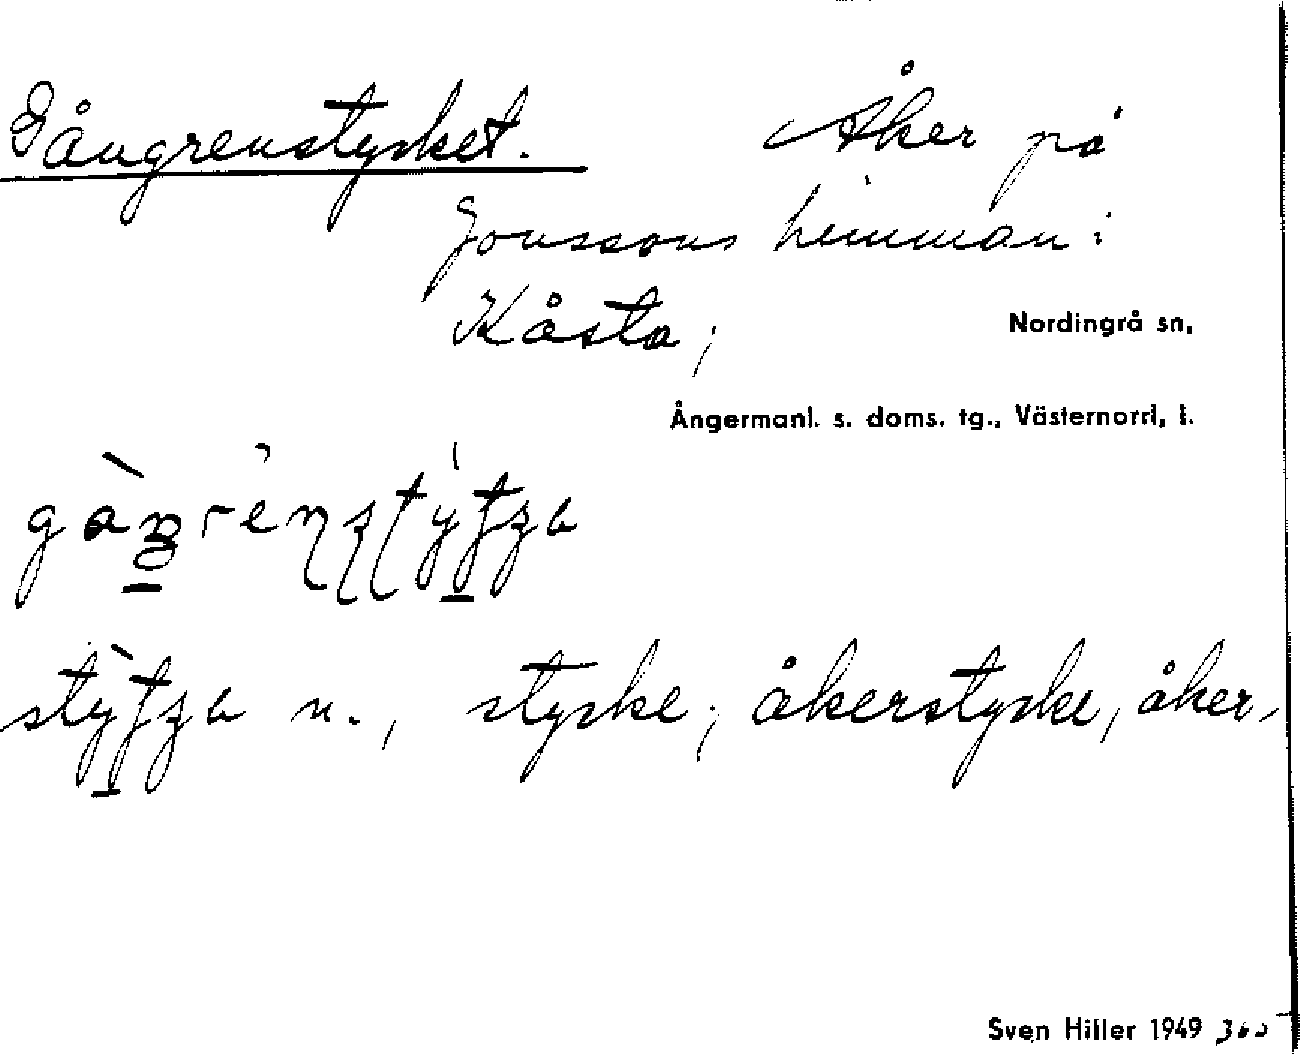 Gångrenstycket. Åker på
Jonssons hemman i
Kåsta;
Nordingrå sn.
Ångermanl. s. doms. tg., Västernorrl. l.
n., stycke; åkerstycke, åker,
Sven Hiller 1949